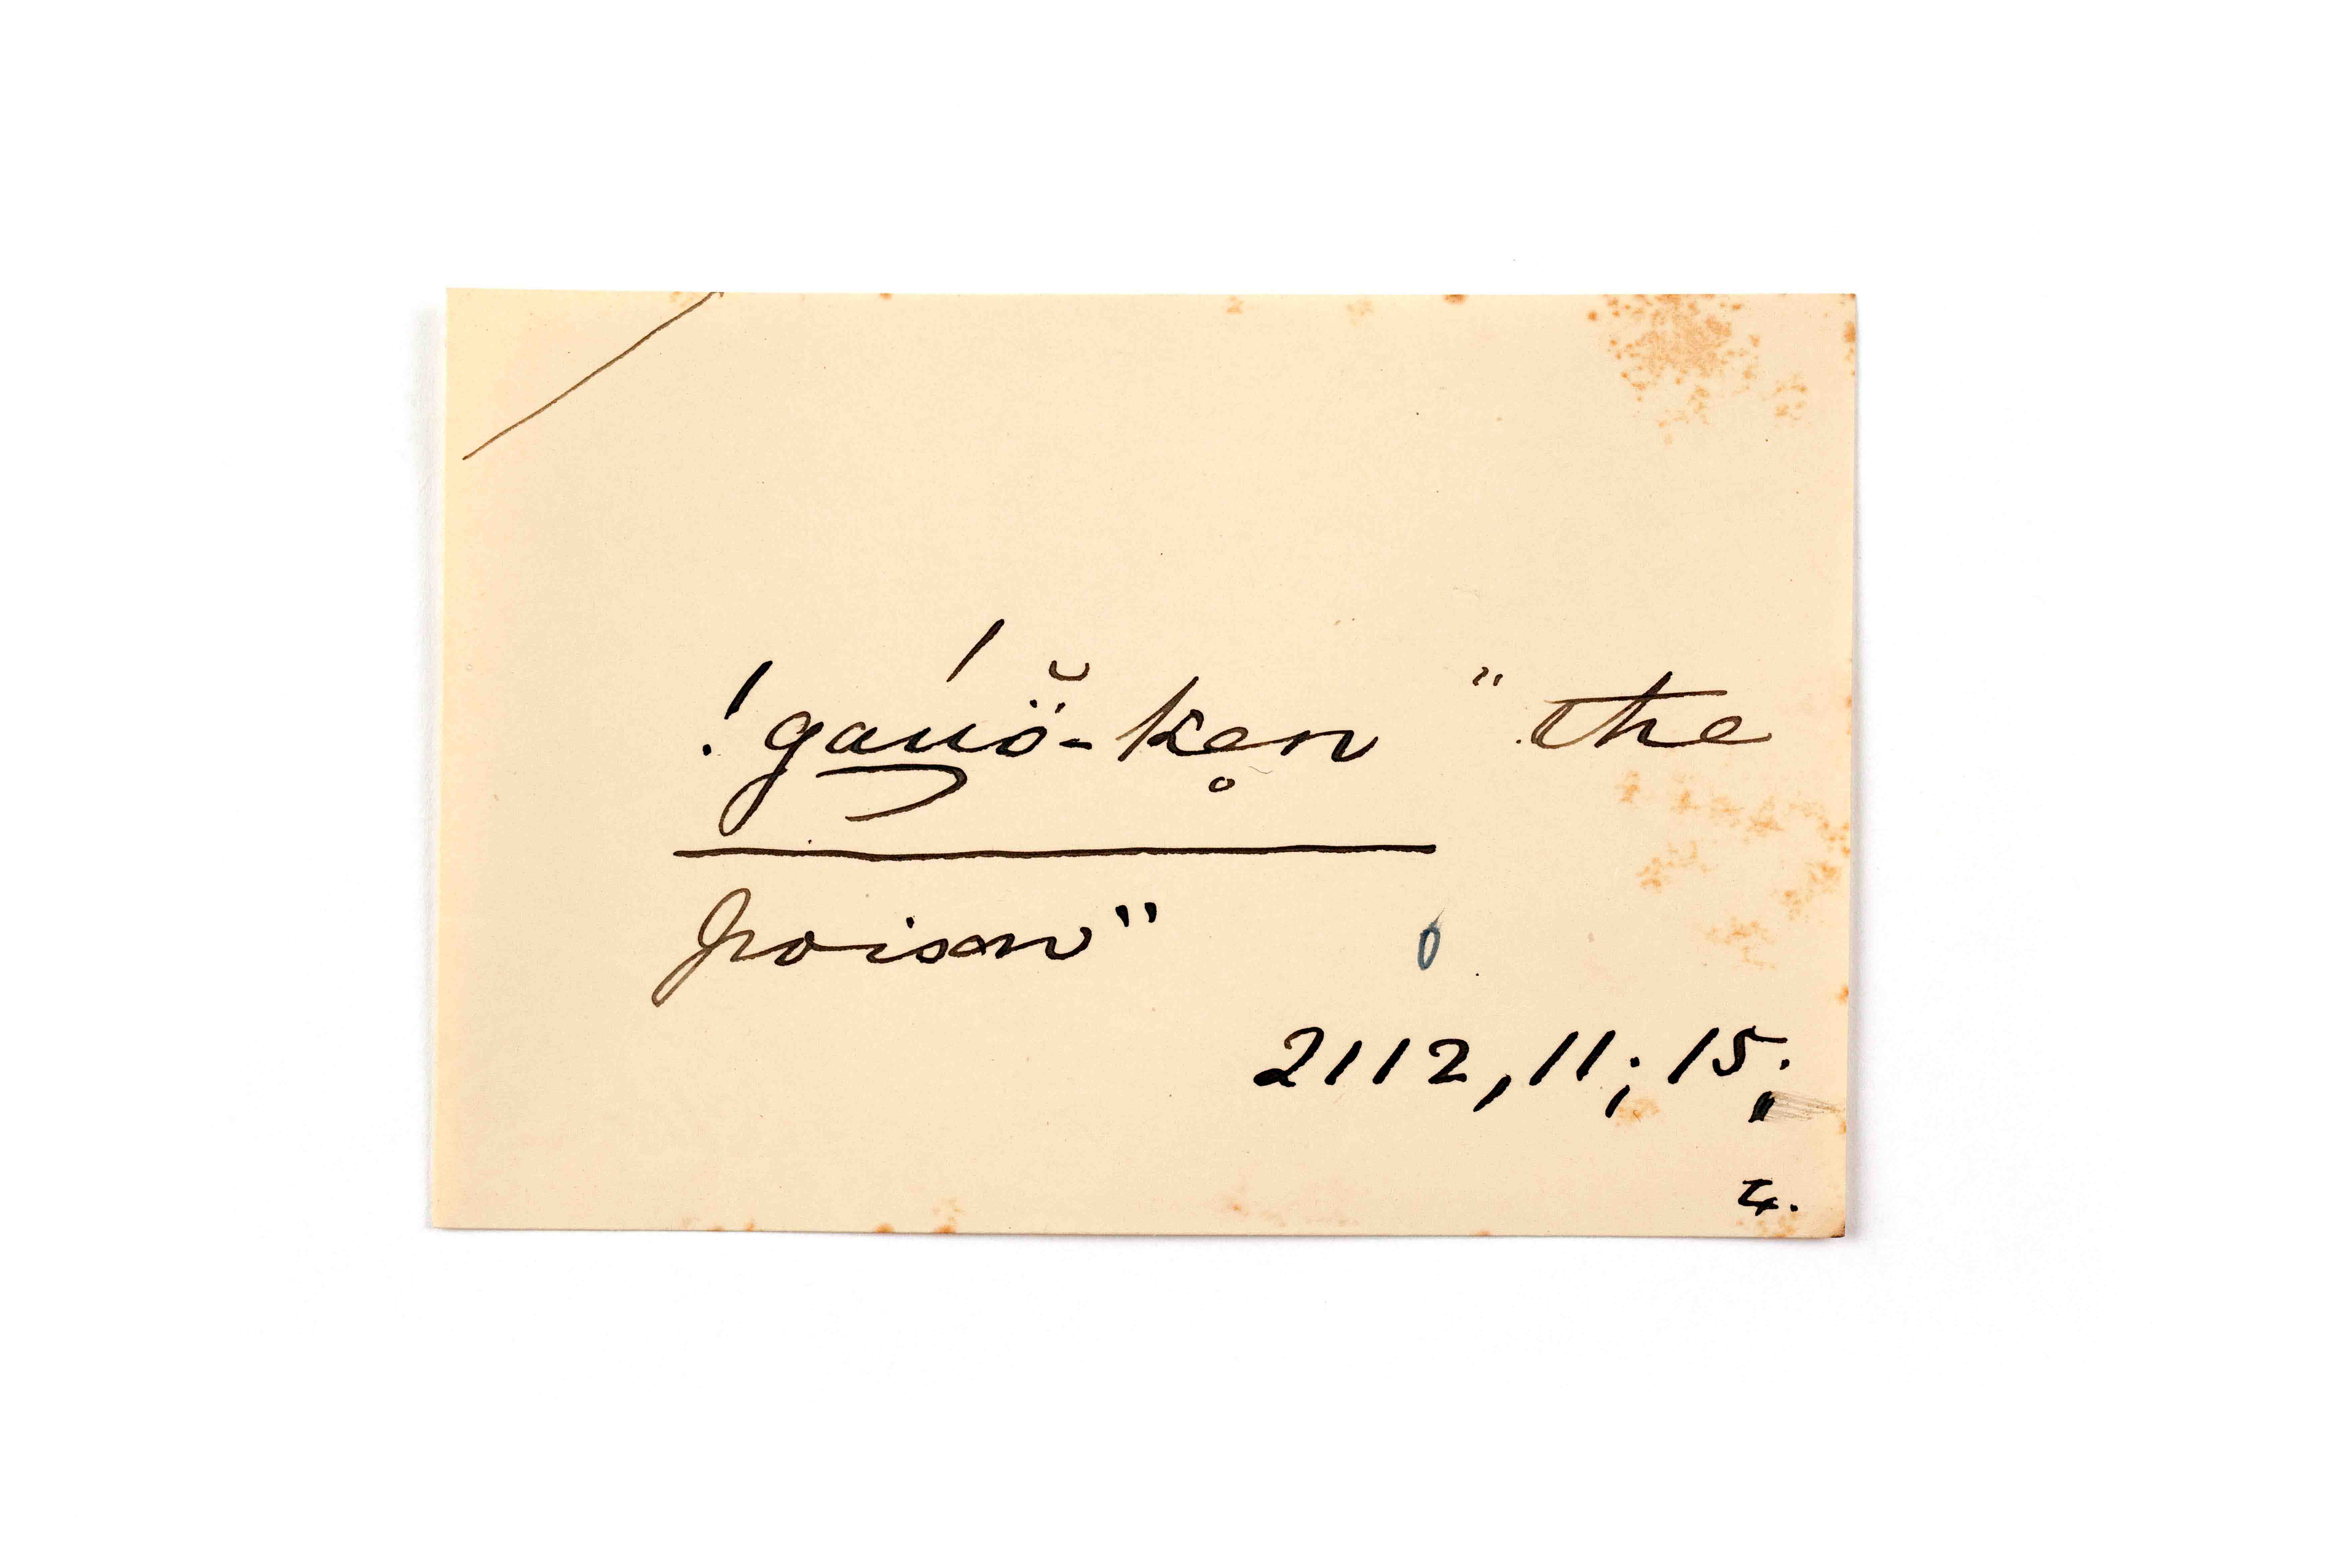 !gauö̆́-ken̥ "the
poison"
2112, 11; 15;
4.